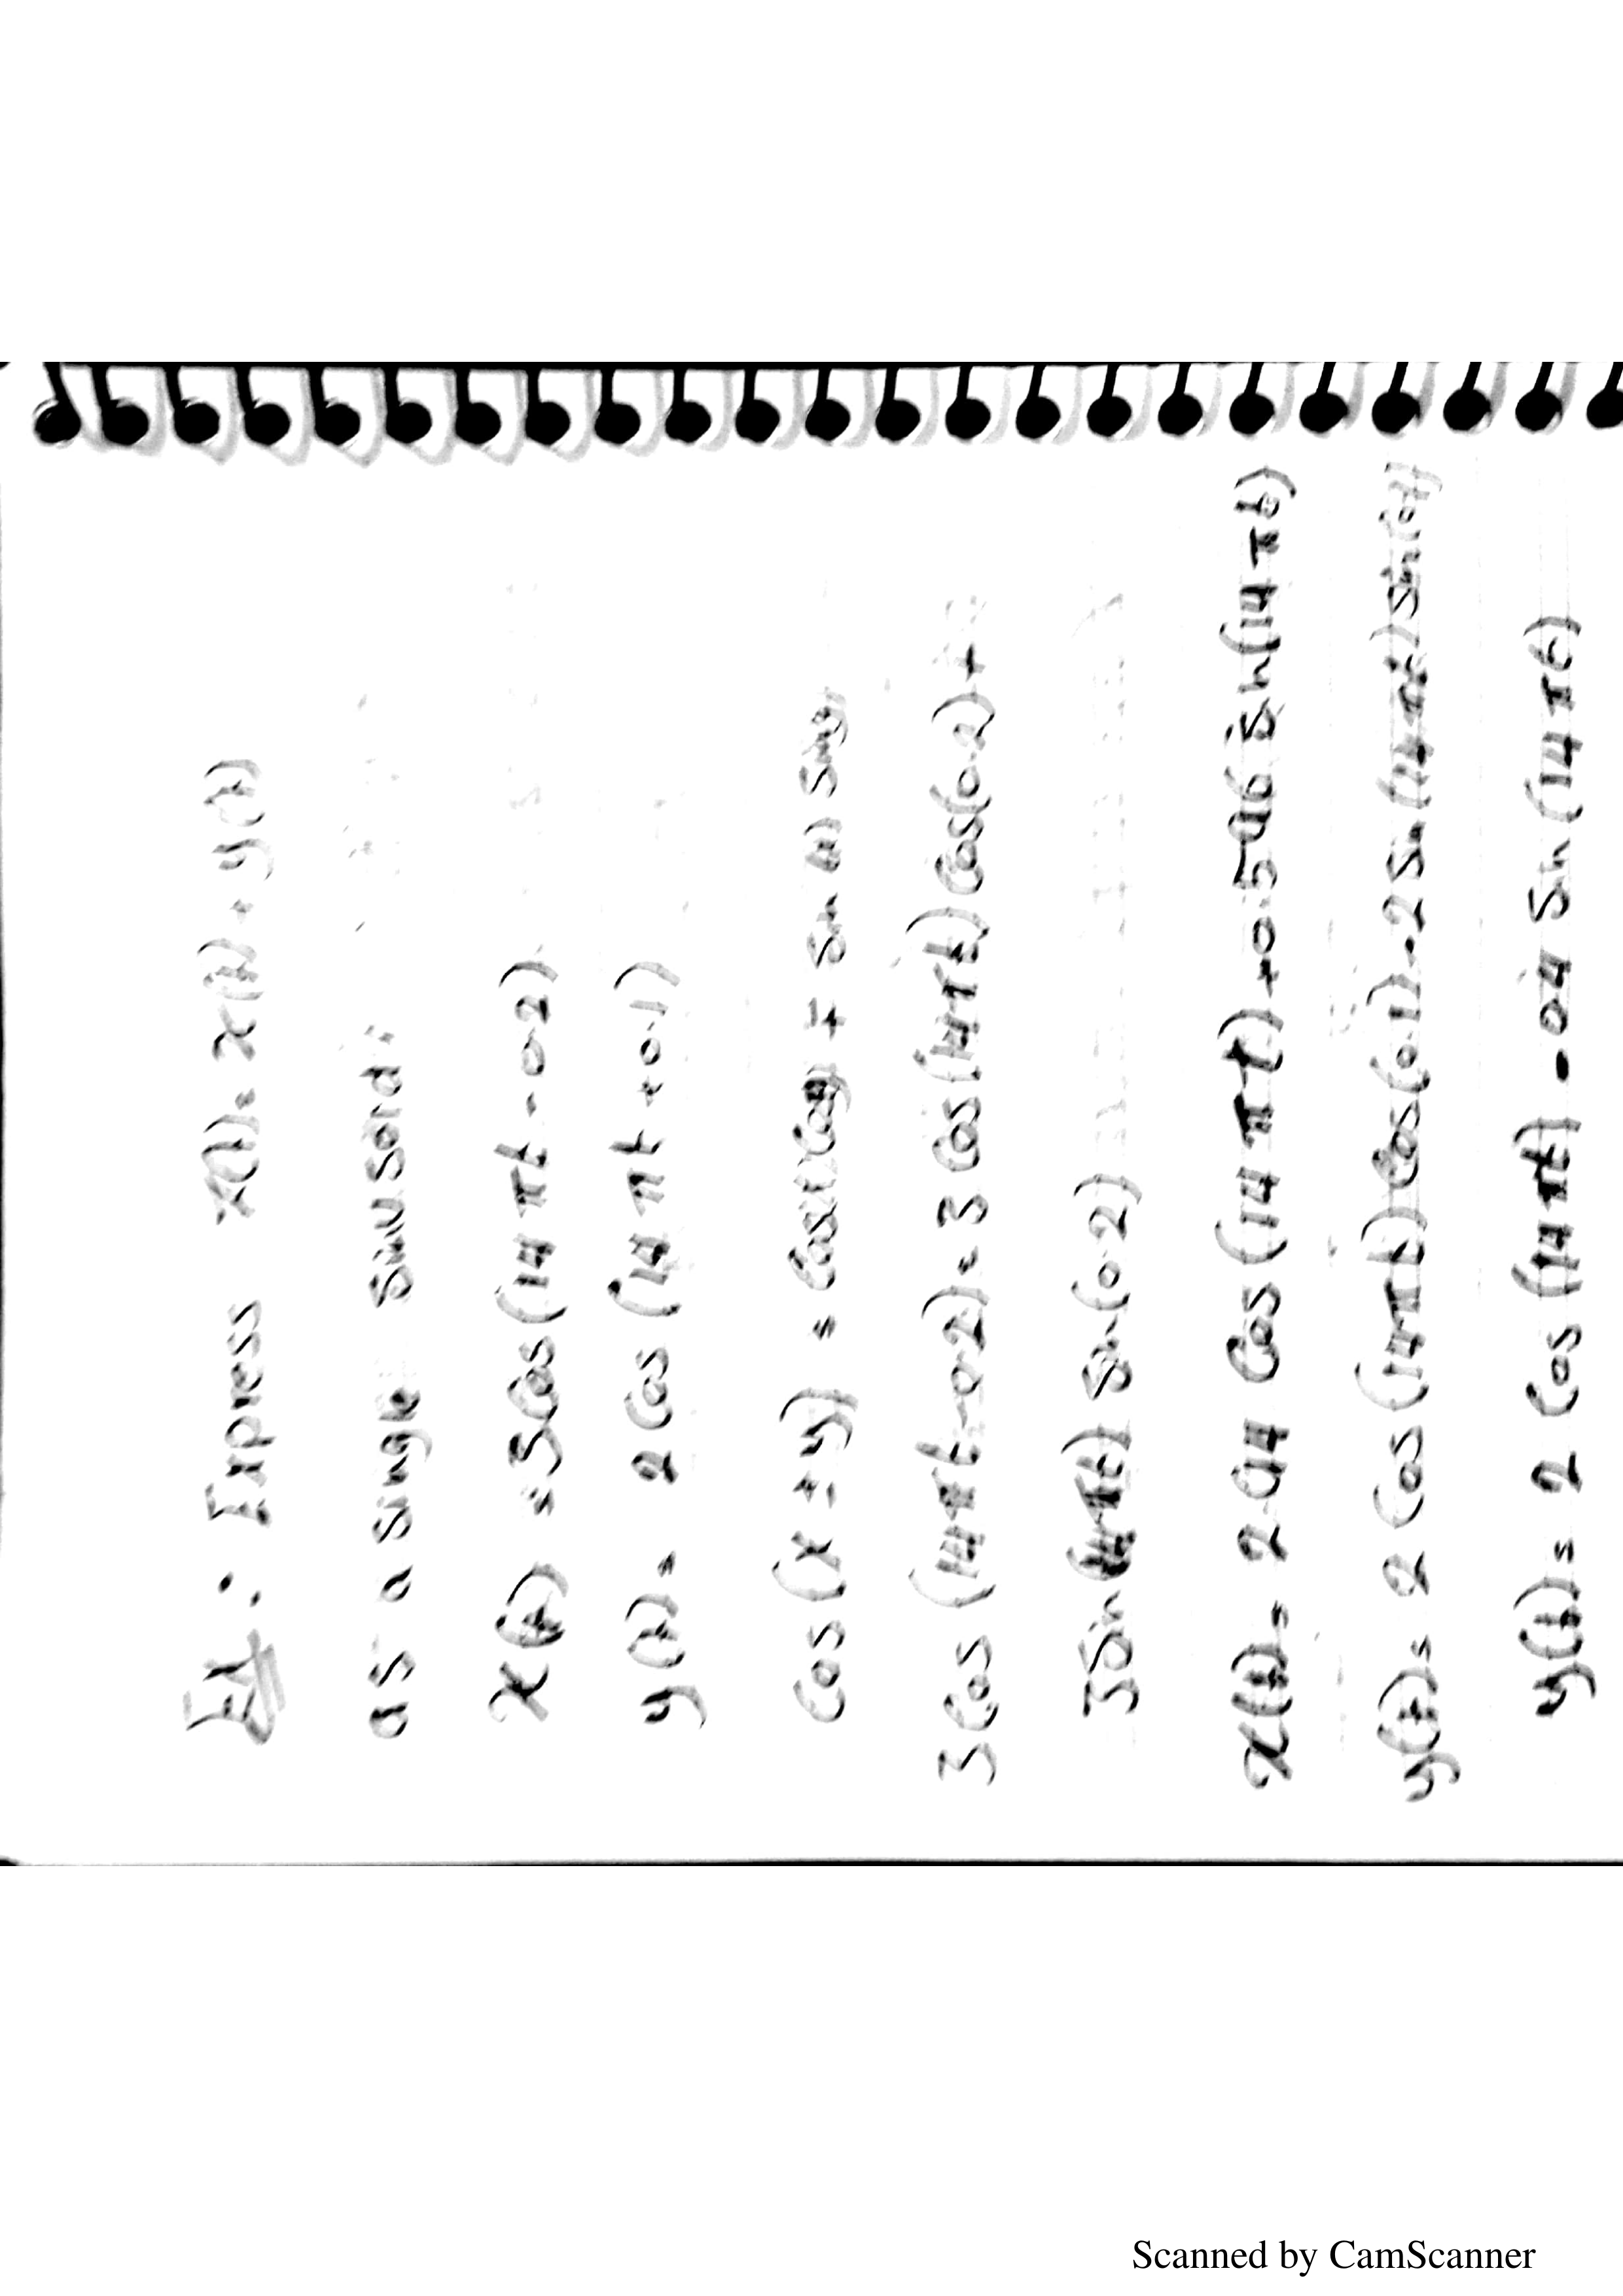 Ex: Express x(t) = x(t) + y(t)
as a single sinusoid:
x(t) = 3 Cos(14 πt - 0.2)
y(t) = 2 Cos (14 πt + 0.1)
Cos (x ± y) = Cosx Cosy ∓ Sin (x) Siny
3 Cos (14πt - 0.2) = 3 Cos(14πt) Cos(0.2) +
3 Sin (14πt) Sin(0.2)
x(t) = 2.94 Cos (14 πt) + 0.596 Sin(14 πt)
y(t) = 2 Cos (14πt) Cos(0.1) - 2 Sin (14πt) Sin(0.1)
y(t) = 2 Cos (14πt) - 0.4 Sin (14πt)
Scanned by CamScanner